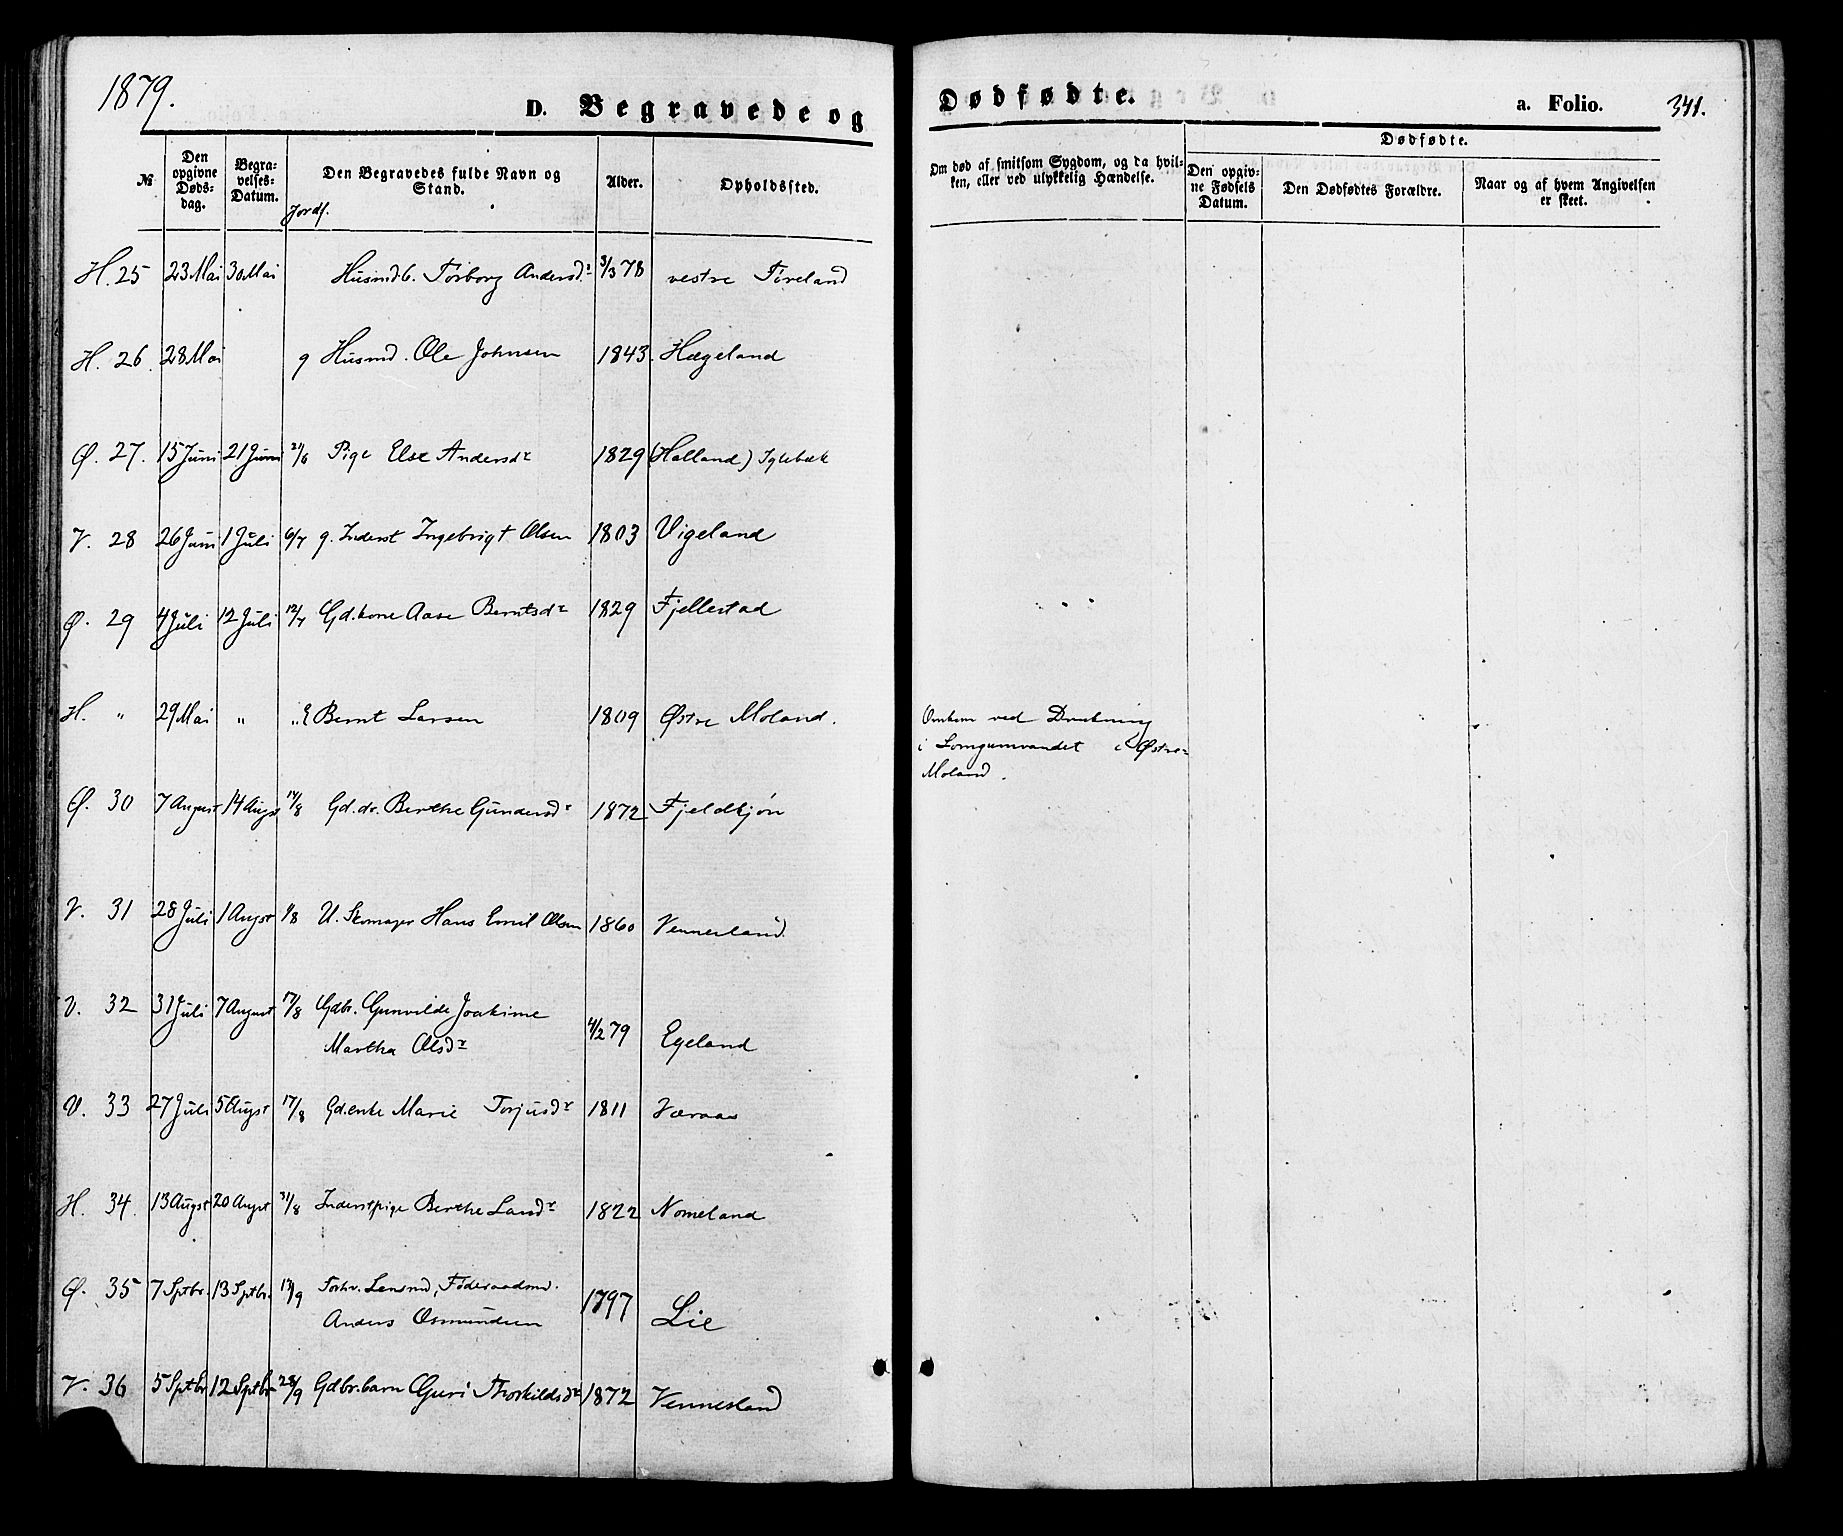 1879.
D. Begravede og Dødfødte. a. Folio. 341.
№ Den opgivne Dødsdag. Begravelses-Datum. Jordf. Den Begravedes fulde Navn og Stand. Alder. Opholdssted. Om død af smitsom Sygdom, og da hvilken, eller ved ulykkelig Hændelse. Dødfødte. Den opgivne Fødsels Datum. Den Dødfødtes Forældre. Naar og af hvem Angivelsen er skeet.
H. 25 23 Mai 30 Mai Husmdb. Torborg Andersdr 3/3 78 vestre Føreland
H. 26. 28 Mai g Husmd. Ole Johnsen 1843. Hægeland
Ø. 27. 15 Juni 21 Juni 21/6 Pige Else Andersdr 1829 (Halland) Iglebæk
V. 28 26 Juni 1 Juli 6/7 g. Inderst Ingebrigt Olsen 1803 Vigeland
Ø. 29 4 Juli 12 Juli 12/7 Gd.kone Aase Berntsdr 1829 Fjellestad
H. " 29 Mai " " Bernt Larsen 1809 Østre Moland. Omkom ved Drukning
i Østre
Moland.
Ø. 30 7 August 14 Augs 14/8 Gd.dr. Berthe Gundersdr 1872 Fjeldkjøn
V. 31 28 Juli 1 Augst 1/8 U. Skomager Hans Emil Olsen 1860 Vennesland.
V. 32 31 Juli 7 August 17/8 Gdbr. Gunvilde Joakime
Martha Olsdr 4/2 79 Egeland
V. 33 27 Juli 5 Augst 17/8 Gdenke Marie Torjusdr 1811 Væraas
H. 34. 13 Augst 20 Augst 31/8 Inderstpige Berthe Larsdr 1822 Nomeland
Ø. 35 7 Sptbr. 13 Sptbr. 13/9 Forhv. Lensmd, Føderaadsmd.
Anders Osmundsen 1797 Lie
V. 36 5 Sptbr 12 Sptbr 28/9 Gdbr.barn Guri Thorkildsdr 1872 Vennesland